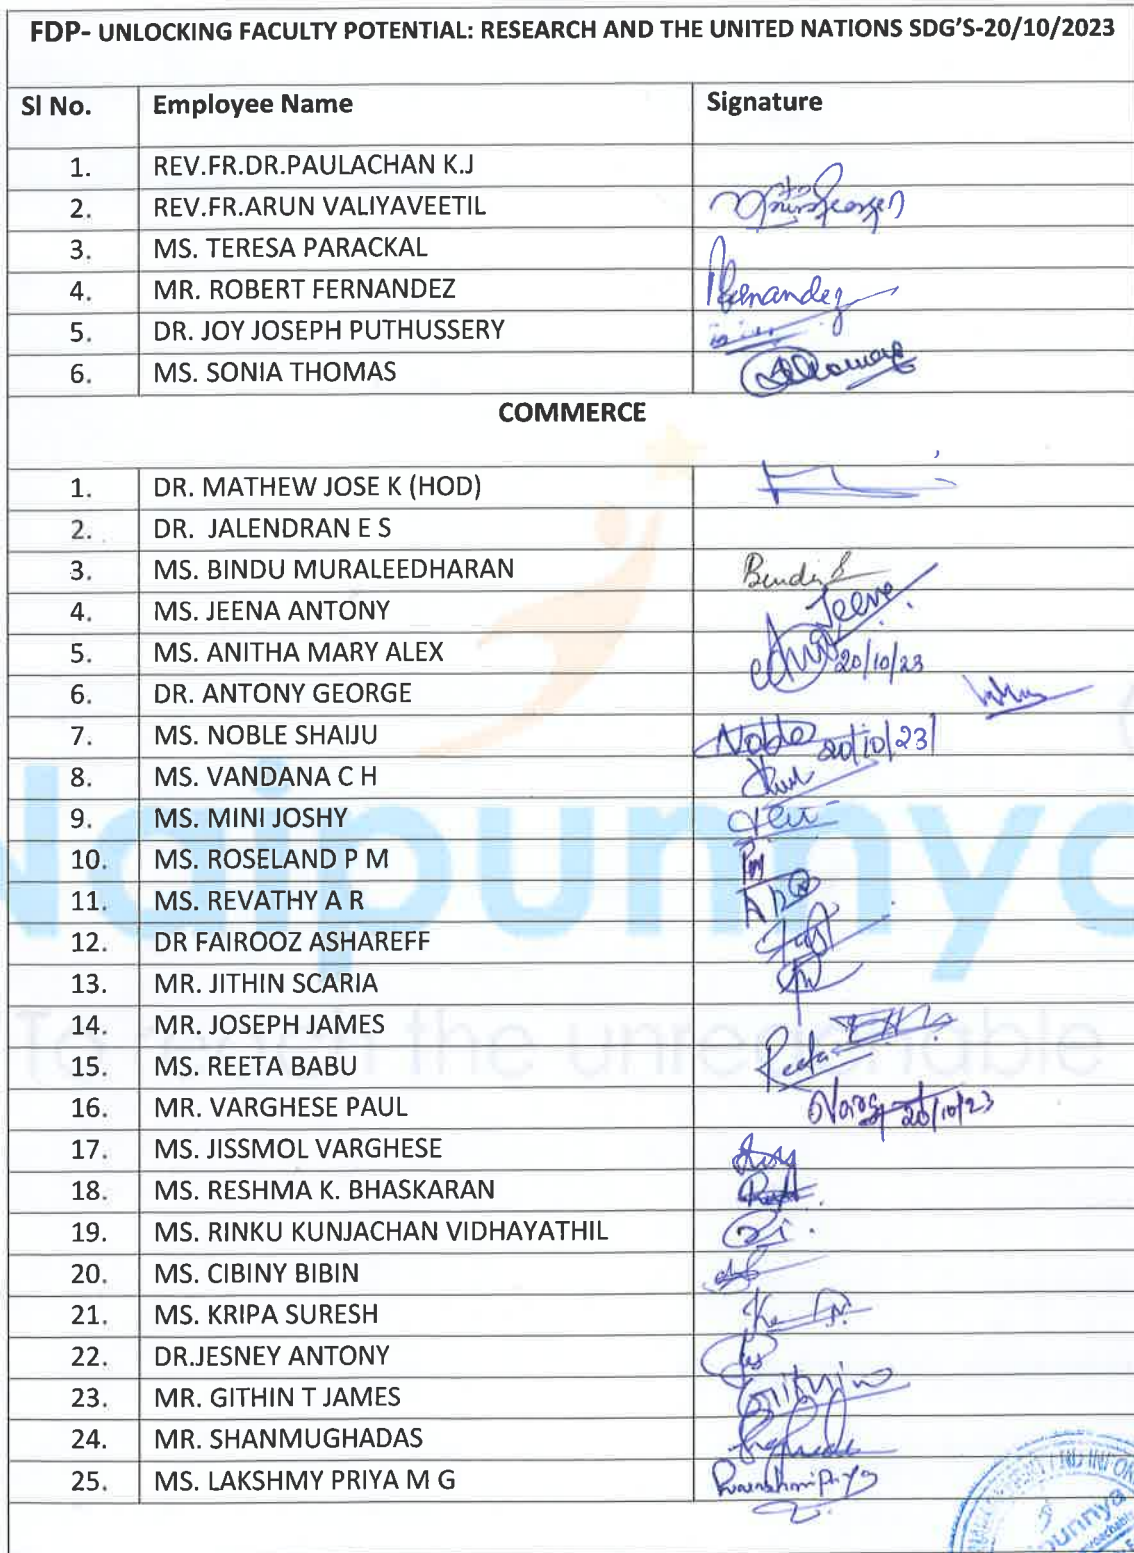 FDP- UNLOCKING FACULTY POTENTIAL: RESEARCH AND THE UNITED NATIONS SDG'S-20/10/2023
Sl No. Employee Name Signature
1. REV.FR.DR.PAULACHAN K.J
2. REV.FR.ARUN VALIYAVEETIL
3. MS. TERESA PARACKAL
4. MR. ROBERT FERNANDEZ Fernandez
5. DR. JOY JOSEPH PUTHUSSERY
6. MS. SONIA THOMAS
COMMERCE
1. DR. MATHEW JOSE K (HOD)
2. DR. JALENDRAN E S
3. MS. BINDU MURALEEDHARAN
4. MS. JEENA ANTONY Jeena
5. MS. ANITHA MARY ALEX 20/10/23
6. DR. ANTONY GEORGE
7. MS. NOBLE SHAIJU Noble 20/10/23
8. MS. VANDANA C H
9. MS. MINI JOSHY
10. MS. ROSELAND P M
11. MS. REVATHY A R
12. DR FAIROOZ ASHAREFF
13. MR. JITHIN SCARIA
14. MR. JOSEPH JAMES
15. MS. REETA BABU Reeta
16. MR. VARGHESE PAUL 20/10/23
17. MS. JISSMOL VARGHESE
18. MS. RESHMA K. BHASKARAN
19. MS. RINKU KUNJACHAN VIDHAYATHIL
20. MS. CIBINY BIBIN
21. MS. KRIPA SURESH
22. DR.JESNEY ANTONY
23. MR. GITHIN T JAMES
24. MR. SHANMUGHADAS
25. MS. LAKSHMY PRIYA M G
Naipunnya
To reach the unreachable